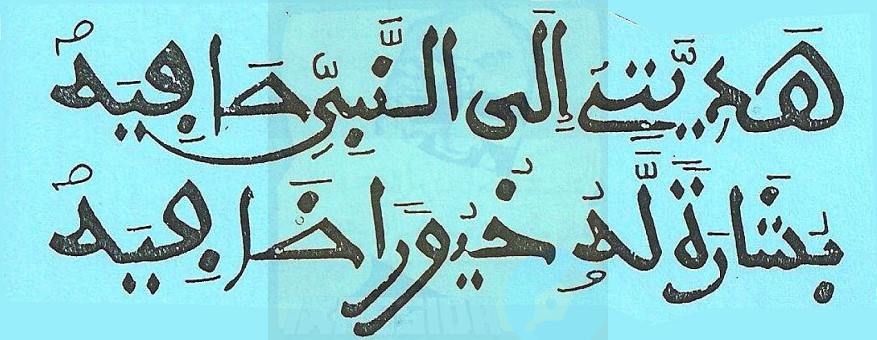 هَدِيَّتِي إِلَى النَّبِيِّ صَافِيَهْ
بُشَارَةً لَّهُ خُيُورًا ضَافِيَهْ